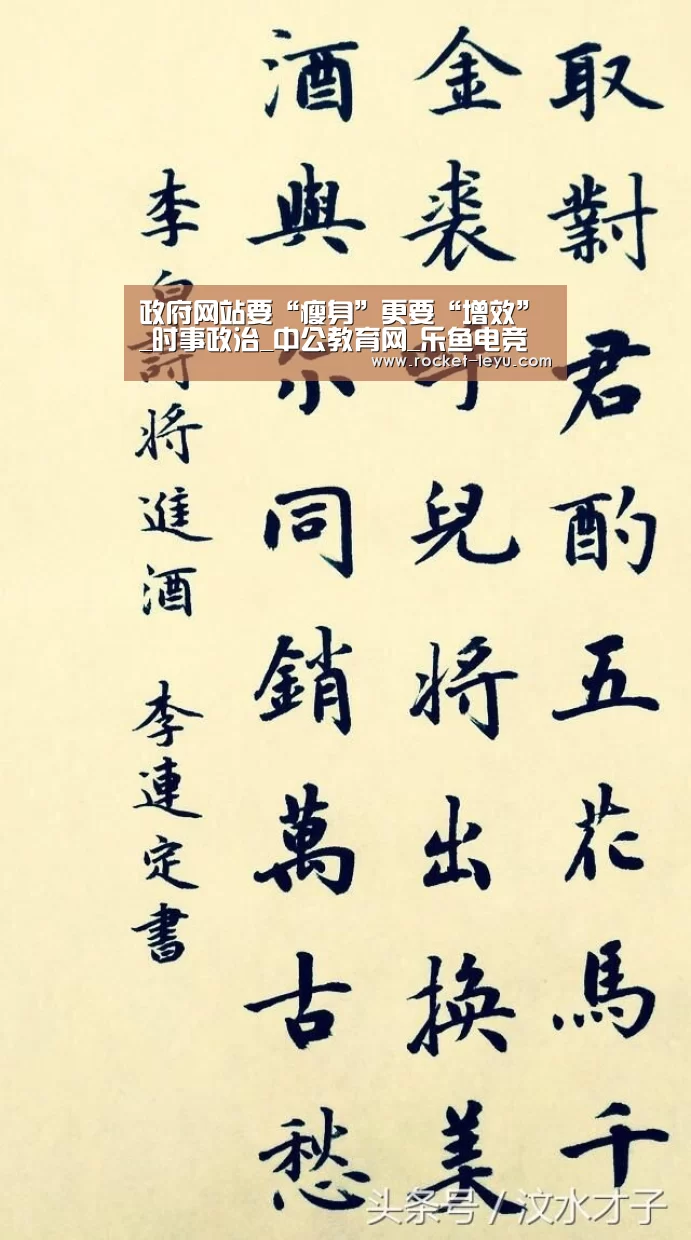 取對君酌五花馬千
金裘呼兒將出換美
酒與尔同銷萬古愁
李白詩將進酒 李連定書
政府网站要“瘦身”更要“增效”
_时事政治_中公教育网_乐鱼电竞
www.rocket-leyu.com
头条号 / 汶水才子